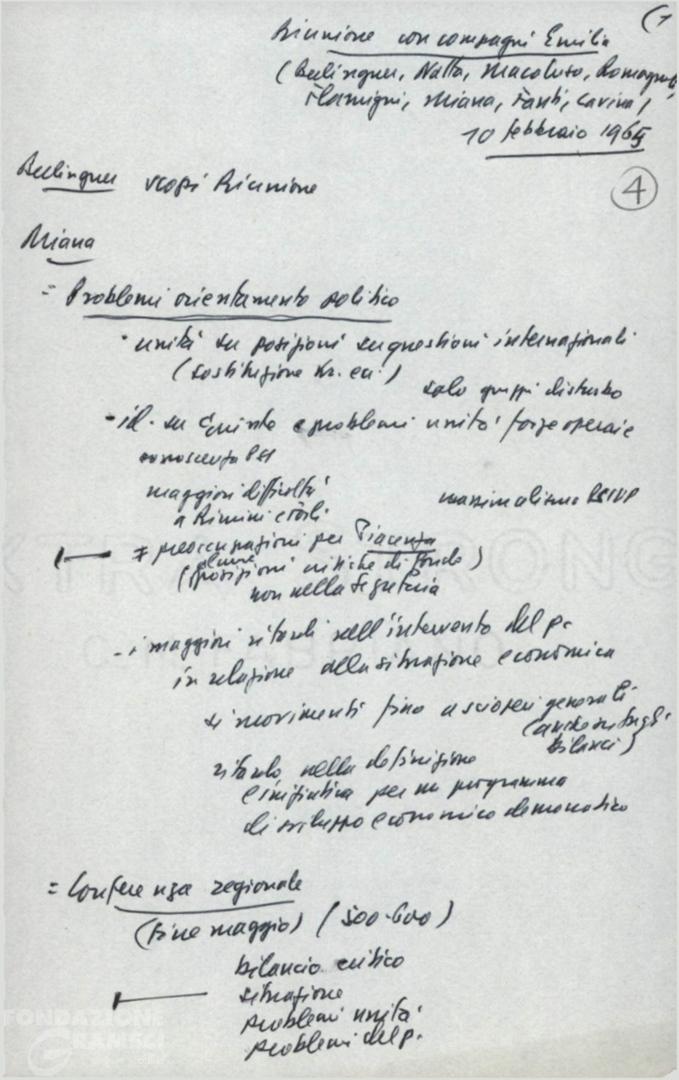 (1
Riunione con compagni Emilia
(Berlinguer, Natta, Macaluso, Romagnoli,
Flamigni, Miana, Fanti, Cavina)
10 febbraio 1965
4
Berlinguer scopi Riunione
Miana
= Problemi orientamento politico
- unità su posizioni su questioni internazionali
(sostituzione Kr. ecc.)
solo gruppi disturbo
- id. su e problemi unità forze operaie
PSI
maggiori difficoltà massimalismo PSIUP
a Rimini e Forlì
≠ preoccupazioni per Piacenza
(alcune posizioni critiche di fondo)
non nella Segreteria
- i maggiori ritardi nell'intervento del p.
in relazione alla situazione economica
sì movimenti fino a scioperi generali
(anche su tagli
bilanci)
ritardo nella definizione
e iniziativa per un programma
di sviluppo economico democratico
= Conferenza regionale
(fine maggio) (500-600)
bilancio critico
situazione
problemi unità
problemi del p.
FONDAZIONE
GRAMSCI